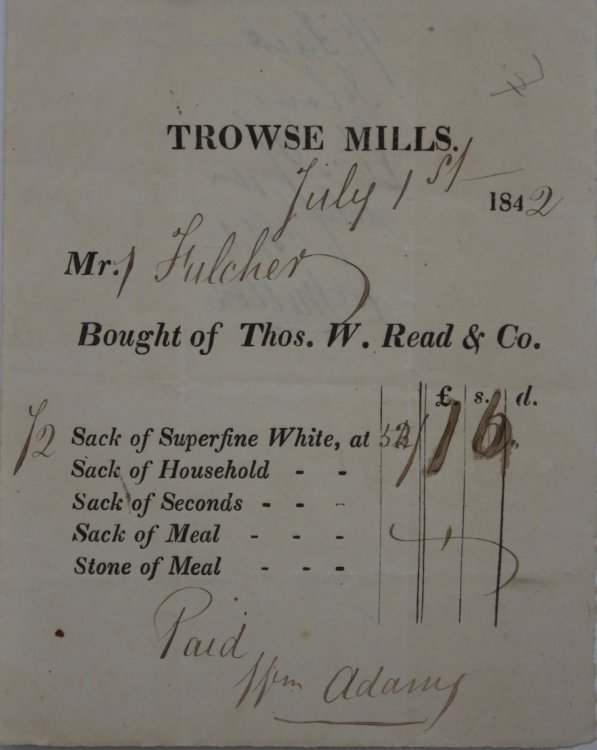 TROWSE MILLS.
July 1st 1842
Mr. Fulcher
Bought of Thos. W. Read & Co.
£. s. d.
1/2 Sack of Superfine White, at 52/ 1 6
Sack of Household - -
Sack of Seconds - - -
Sack of Meal - - -
Stone of Meal - - -
Paid
Wm Adams